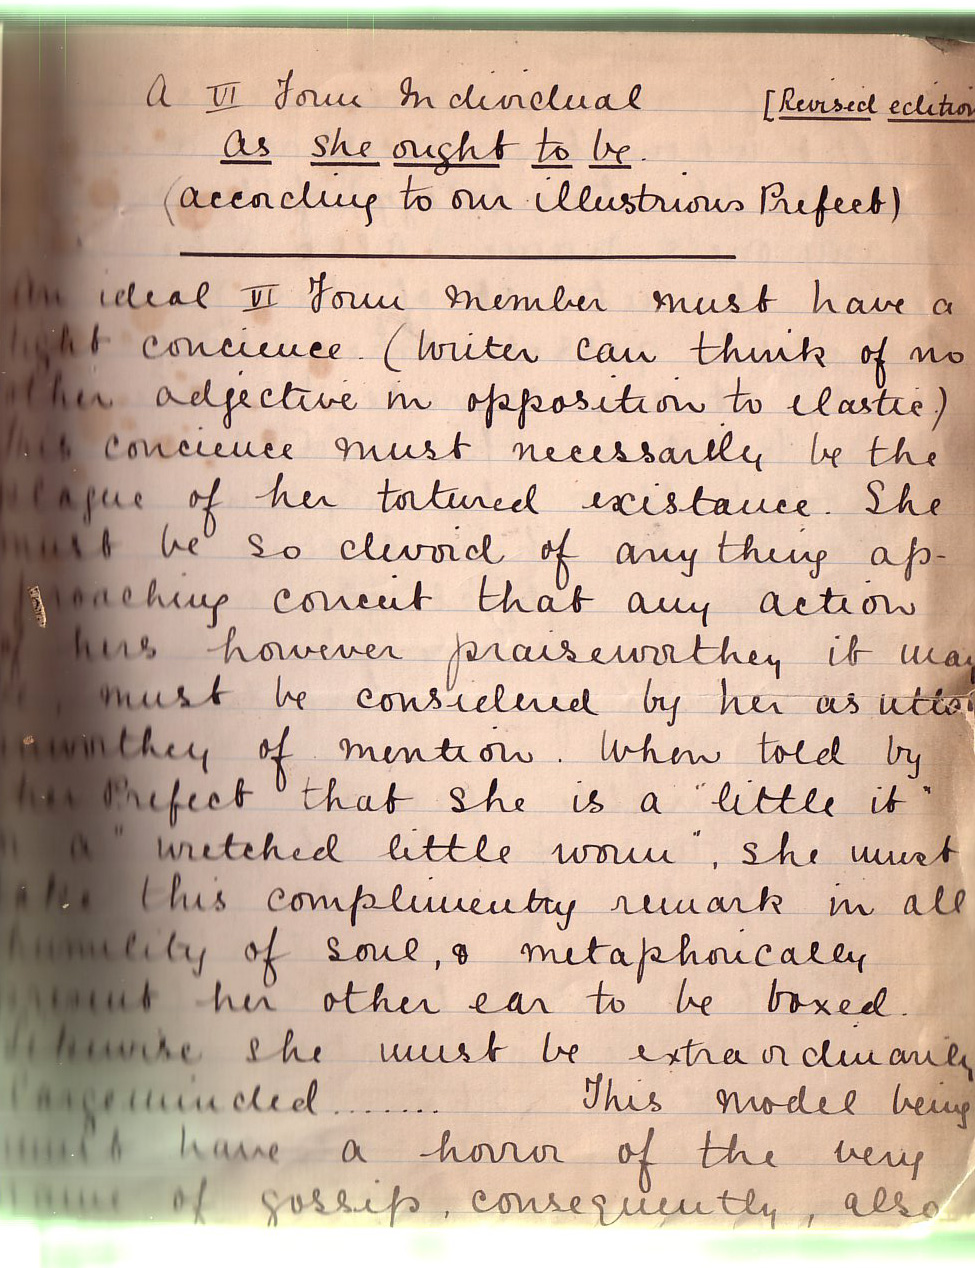 A VI Form Individual [Revised edition
as she ought to be.
(according to our illustrious Prefect)
An ideal VI Form member must have a
tight concience. (Writer can think of no
other adjective in opposition to elastic)
This concience must necessarily be the
plague of her tortured existance. She
must be so devoid of anything ap-
proaching conceit that any action
of hers however praiseworthey it may
be, must be considered by her as
unworthey of mention. When told by
her Prefect that she is a "little it"
or a "wretched little worm", she must
take this complimentry remark in all
humility of soul, & metaphorically
present her other ear to be boxed.
Likewise she must be extraordinarily
largeminded....... This model being
must have a horror of the very
name of gossip, consequently, also